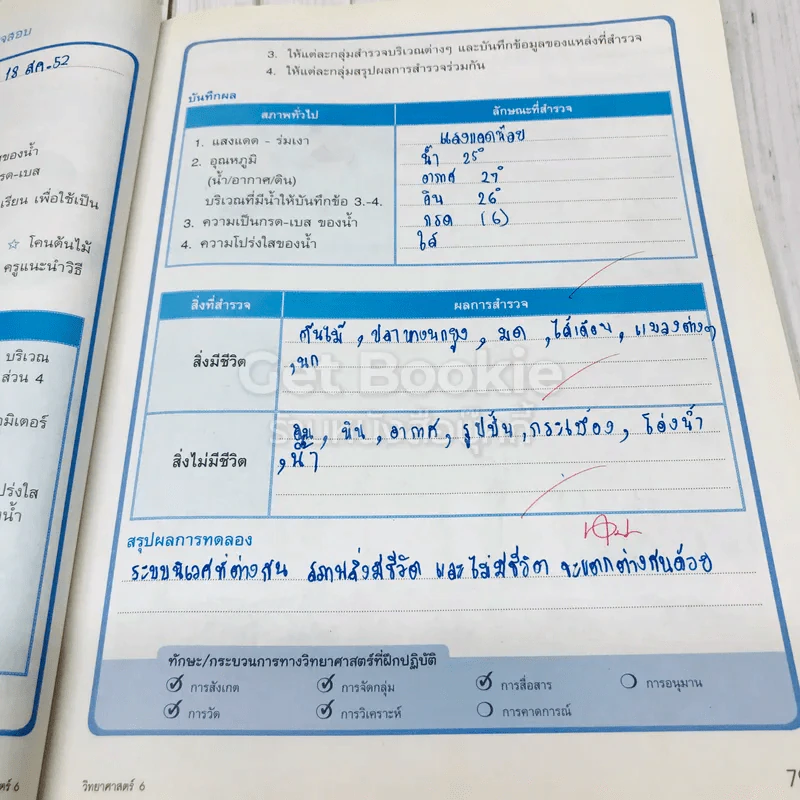 จสอบ
18 สค.52
ของน้ำ
รด-เบส
เรียน เพื่อใช้เป็น
☆ โคนต้นไม้
ครูแนะนำวิธี
บริเวณ
ส่วน 4
ามิเตอร์
ปร่งใส
งน้ำ
ตร์ 6
3. ให้แต่ละกลุ่มสำรวจบริเวณต่างๆ และบันทึกข้อมูลของแหล่งที่สำรวจ
4. ให้แต่ละกลุ่มสรุปผลการสำรวจร่วมกัน
บันทึกผล
สภาพทั่วไป ลักษณะที่สำรวจ
1. แสงแดด - ร่มเงา แสงแดดน้อย
2. อุณหภูมิ น้ำ 25°
(น้ำ/อากาศ/ดิน) อากาศ 27°
บริเวณที่มีน้ำให้บันทึกข้อ 3.-4. ดิน 26°
3. ความเป็นกรด-เบส ของน้ำ กรด (6)
4. ความโปร่งใสของน้ำ ใส
สิ่งที่สำรวจ ผลการสำรวจ
ต้นไม้ , ปลาหางนกยูง , มด , ไส้เดือน , แมลงต่างๆ
สิ่งมีชีวิต , นก
Get Bookie
ดิน , หิน , อากาศ , รูปปั้น , กระเบื้อง , โอ่งน้ำ
สิ่งไม่มีชีวิต , น้ำ
สรุปผลการทดลอง
ระบบนิเวศที่ต่างกัน สภาพสิ่งมีชีวิต และไม่มีชีวิต จะแตกต่างกันด้วย
ทักษะ/กระบวนการทางวิทยาศาสตร์ที่ฝึกปฏิบัติ
การสังเกต การจัดกลุ่ม การสื่อสาร การอนุมาน
การวัด การวิเคราะห์ การคาดการณ์
วิทยาศาสตร์ 6